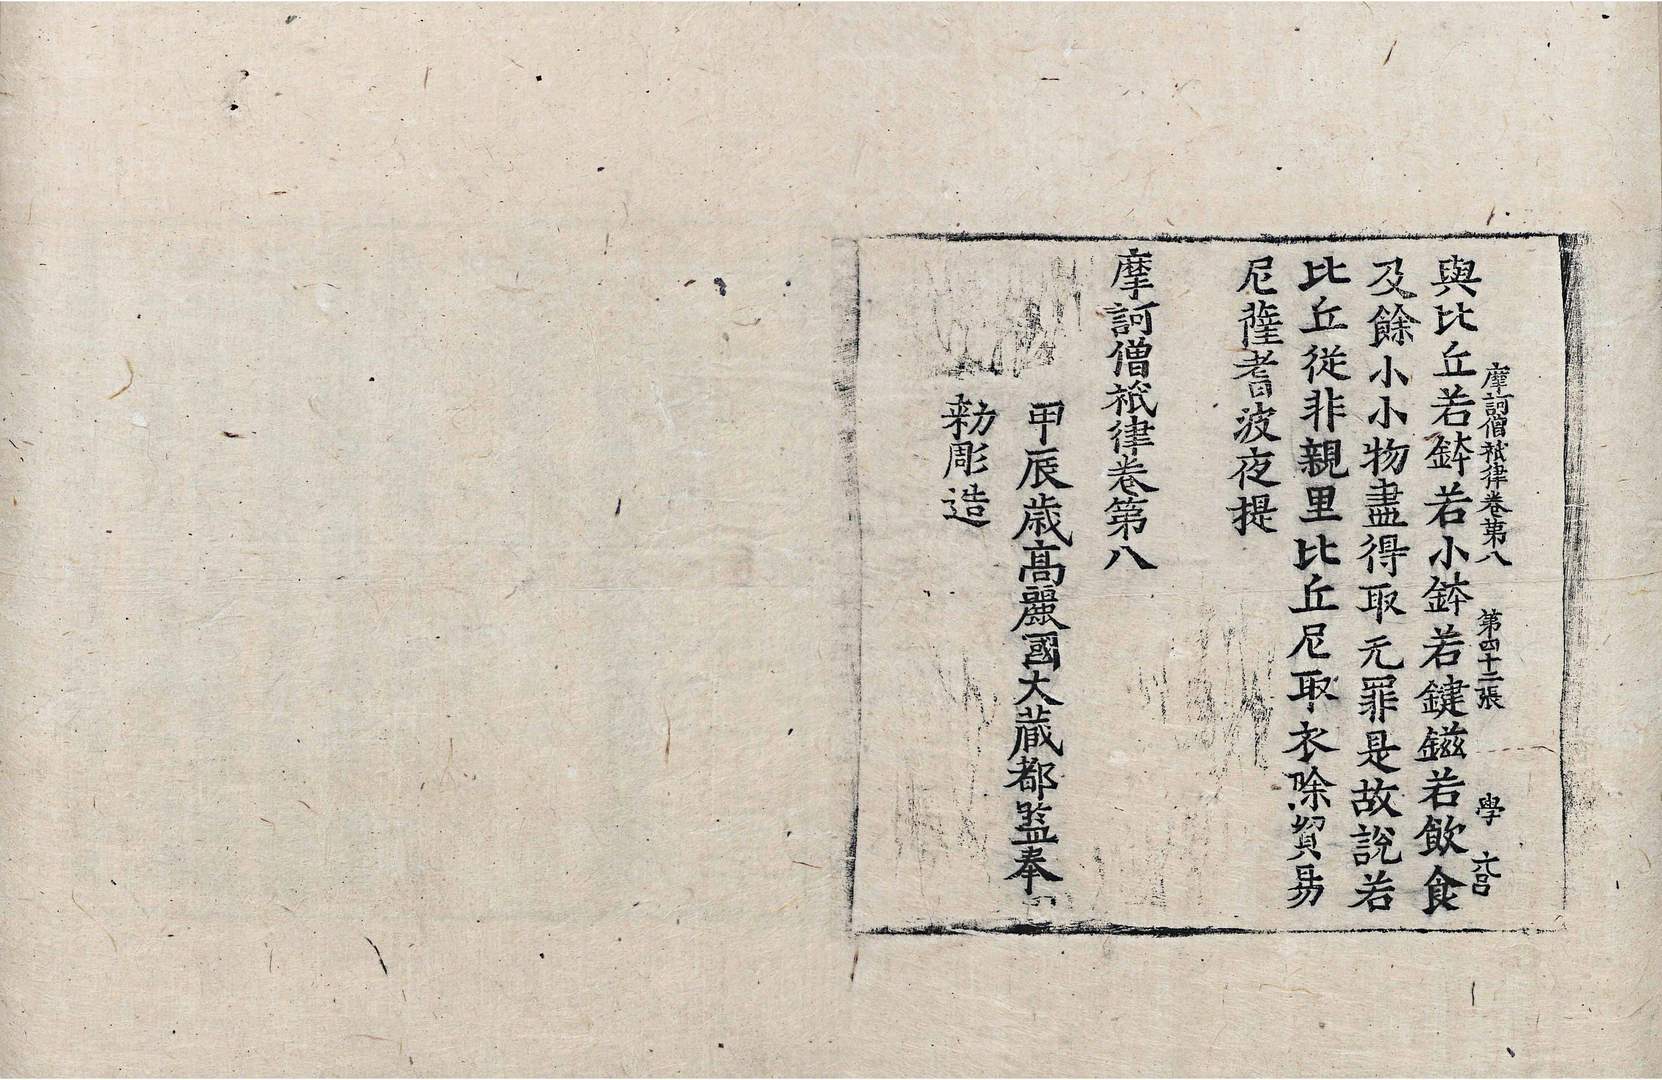 摩訶僧祇律卷第八 第四十二張 學
與比丘若鉢若小鉢若鍵鎡若飲食
及餘小小物盡得取无罪是故說若
比丘從非親里比丘尼取衣除貿易
尼薩耆波夜提
摩訶僧祇律卷第八
甲辰歲高麗國大藏都監奉
勑彫造